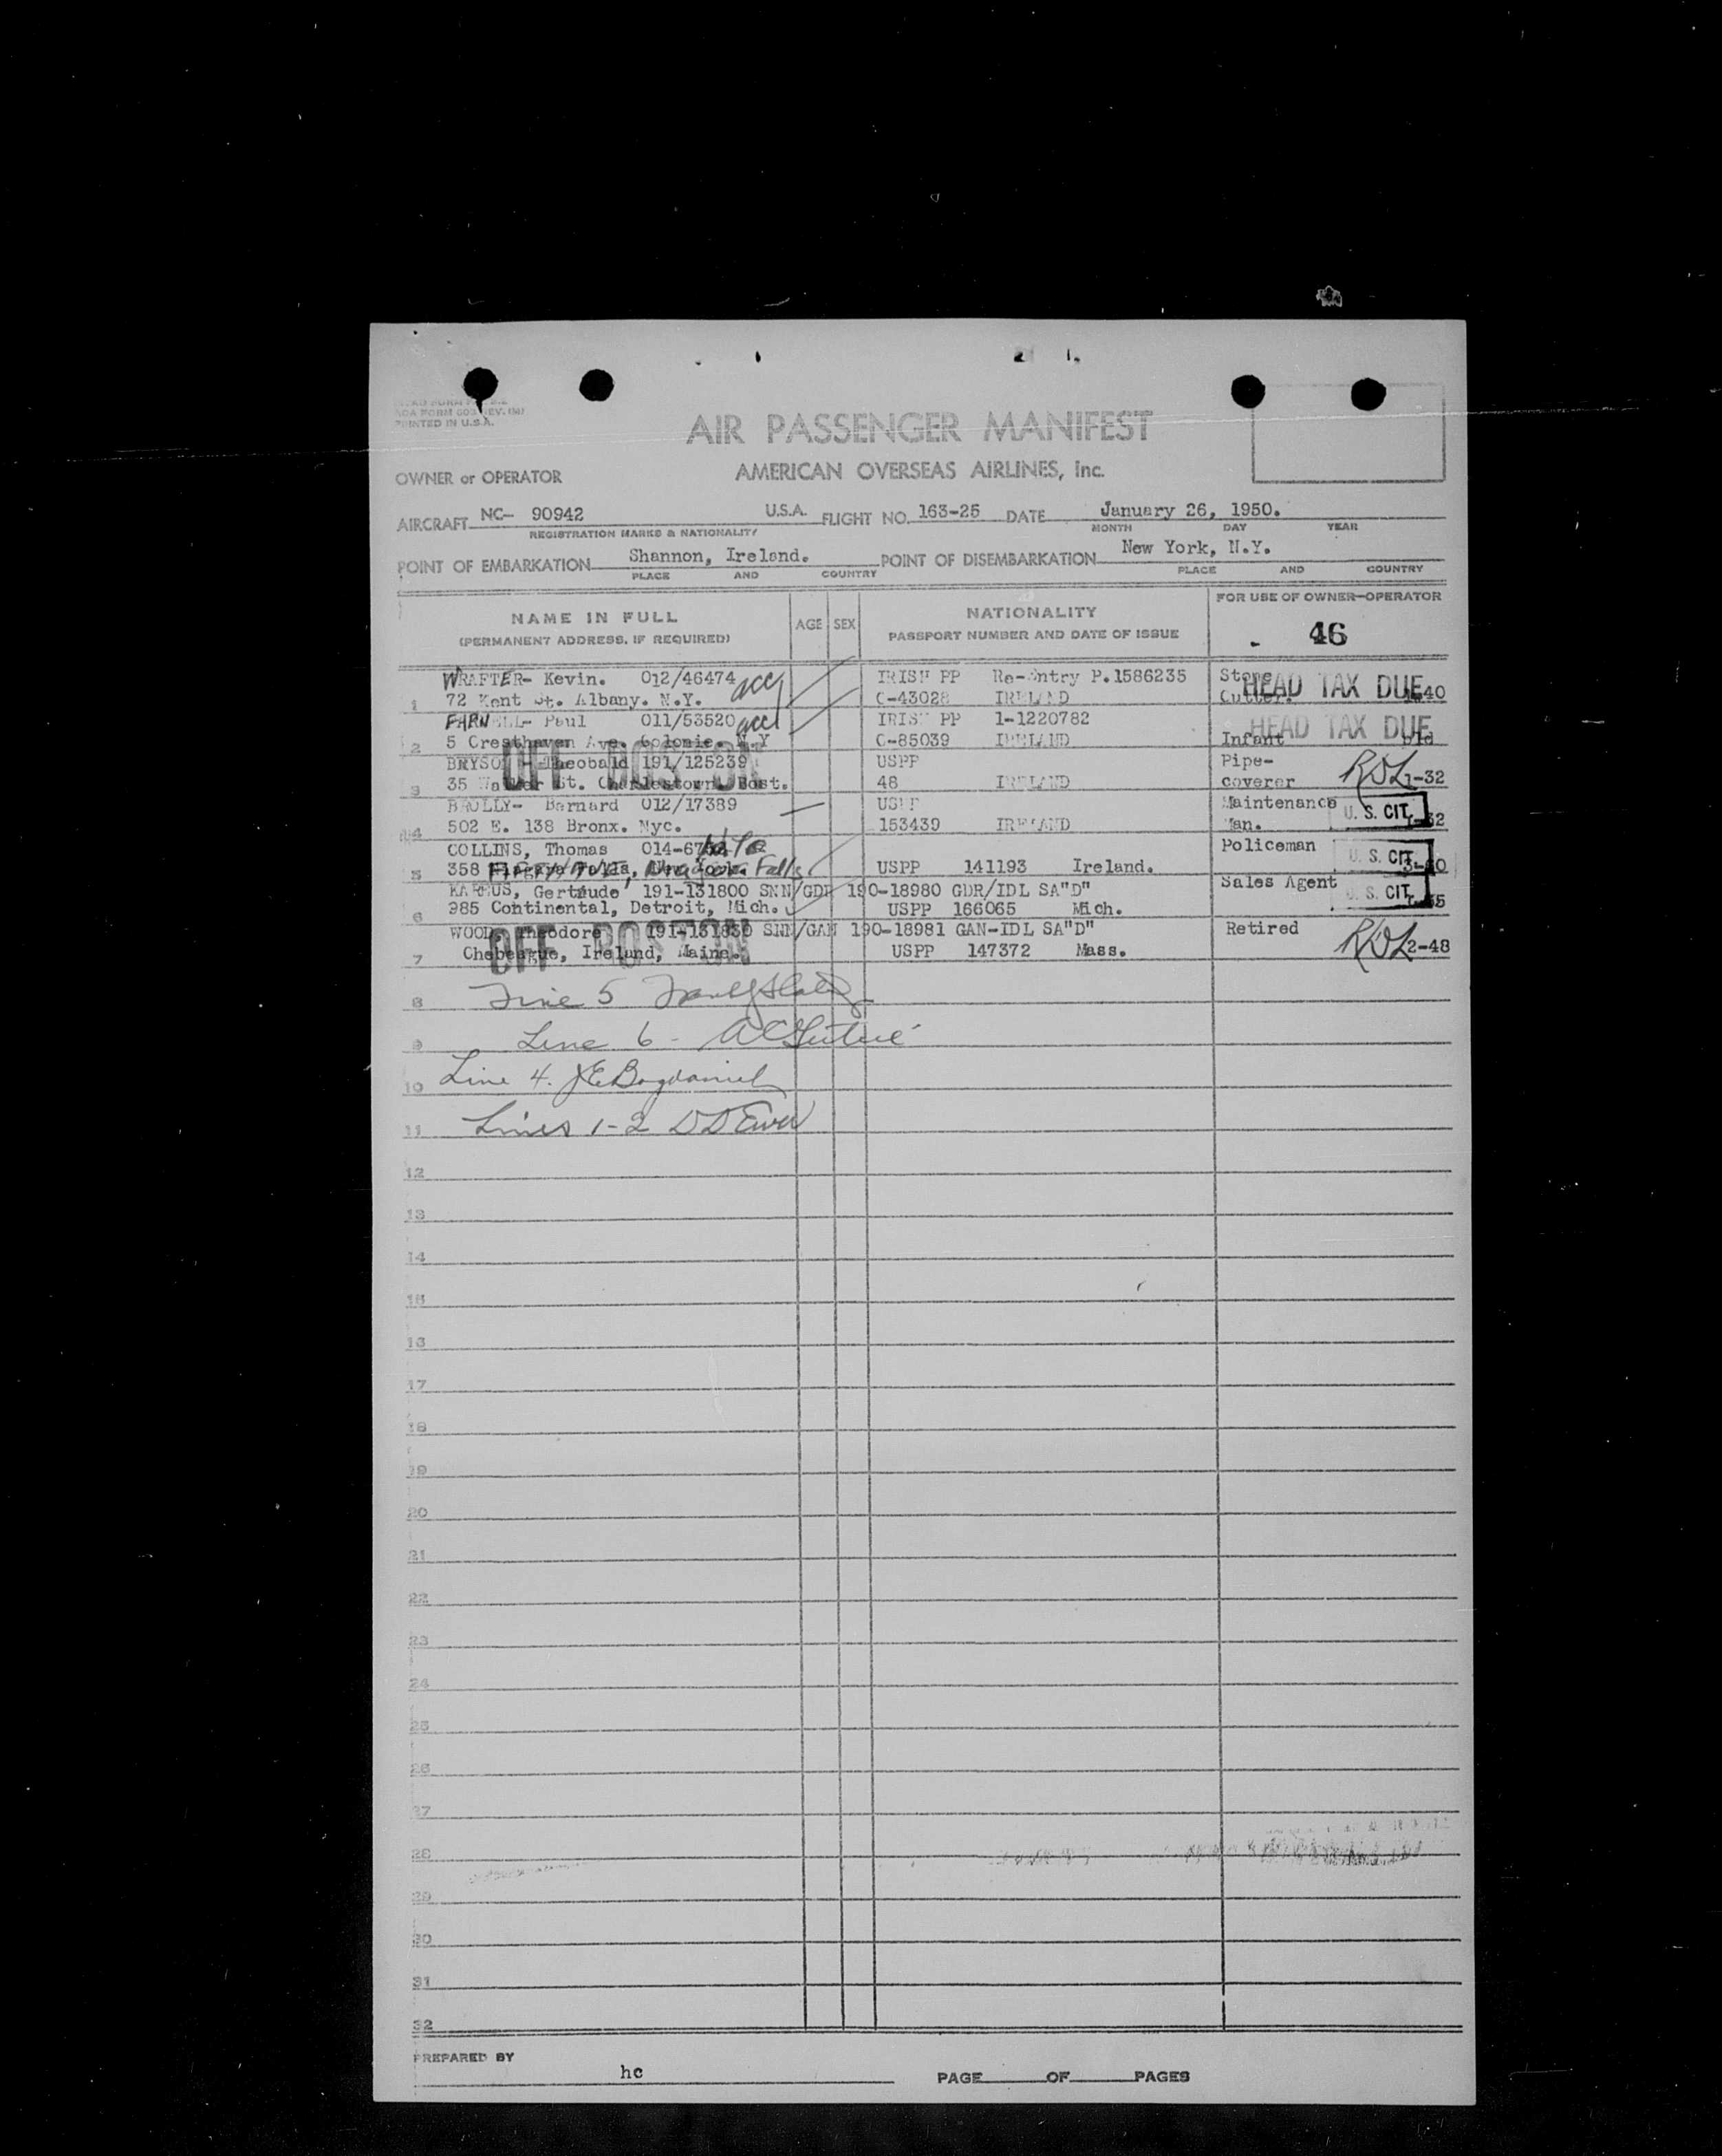 ADA FORM 603
PRINTED IN U.S.A.
AIR PASSENGER MANIFEST
OWNER or OPERATOR AMERICAN OVERSEAS AIRLINES, Inc.
AIRCRAFT NC- 90942 U.S.A. FLIGHT NO. 163-25 DATE January 26, 1950.
REGISTRATION MARKS & NATIONALITY MONTH DAY YEAR
POINT OF EMBARKATION Shannon, Ireland. POINT OF DISEMBARKATION New York, N.Y.
PLACE AND COUNTRY PLACE AND COUNTRY
NAME IN FULL AGE SEX NATIONALITY FOR USE OF OWNER-OPERATOR
(PERMANENT ADDRESS, IF REQUIRED) PASSPORT NUMBER AND DATE OF ISSUE - 46
WRAFTER- Kevin. 012/46474 acc IRISH PP Re-Entry P.1586235 Stone HEAD TAX DUE
1 72 Kent St. Albany. N.Y. C-43028 IRELAND Cutter. 40
FARNELL- Paul 011/53520 acc IRISH PP 1-1220782 HEAD TAX DUE
2 5 Cresthaven Ave. Colonie. N.Y C-85039 IRELAND Infant
BRYSON- Theobald 191/125239 USPP Pipe-
OFF BOSTON
3 35 Walker St. Charlestown Bost. 48 IRELAND coverer RDL 1-32
BROLLY- Barnard 012/17389 USPP Maintenance U. S. CIT.
4 502 E. 138 Bronx. Nyc. 153439 IRELAND Man.
COLLINS, Thomas 014- Policeman U. S. CIT.
5 358 Falls USPP 141193 Ireland.
Gertrude 191-131800 SNN/GDR 190-18980 GDR/IDL SA"D" Sales Agent U. S. CIT.
6 985 Continental, Detroit, Mich. USPP 166065 Mich.
WOOD, Theodore 191-131830 SNN/GAN 190-18981 GAN-IDL SA"D" Retired
OFF BOSTON
7 Chebeague, Ireland, Maine. USPP 147372 Mass. RDL 2-48
8 Line 5
9 Line 6 -
10 Line 4. JE Bogdaniel
11 Lines 1-2 DD
12
13
14
15
16
17
18
19
20
21
22
23
24
25
26
27
28
29
30
31
32
PREPARED BY hc PAGE OF PAGES